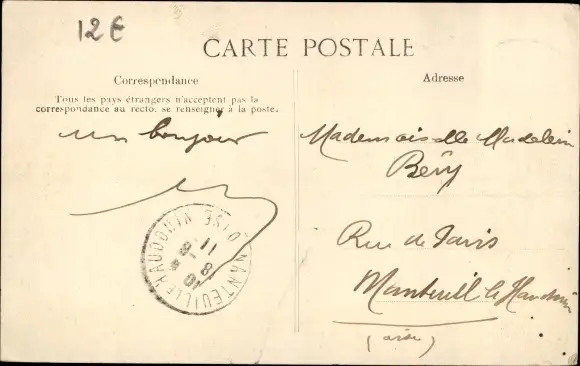 12€
CARTE POSTALE
Correspondance
Tous les pays étrangers n'acceptent pas la
correspondance au recto, se renseigner à la poste.
un bonjour
Adresse
Mademoiselle Madelein
Béry
Rue de Paris
Nanteuil le Haudouin
(oise)
NANTEUIL-LE-HAUDOUIN OISE
11
8
10